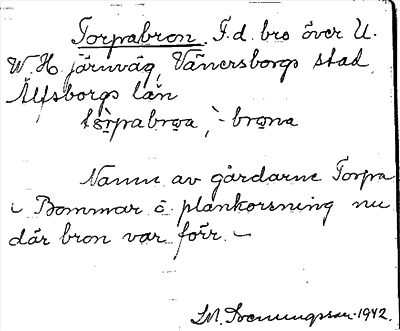 Torpabron. F.d. bro över U.
W. H. järnväg, Vänersborgs stad,
Älfsborgs län
tòrpabroa, -brona
Namn av gårdarne Torpa
Bommar å plankorsning nu
där bron var förr. –
1942.